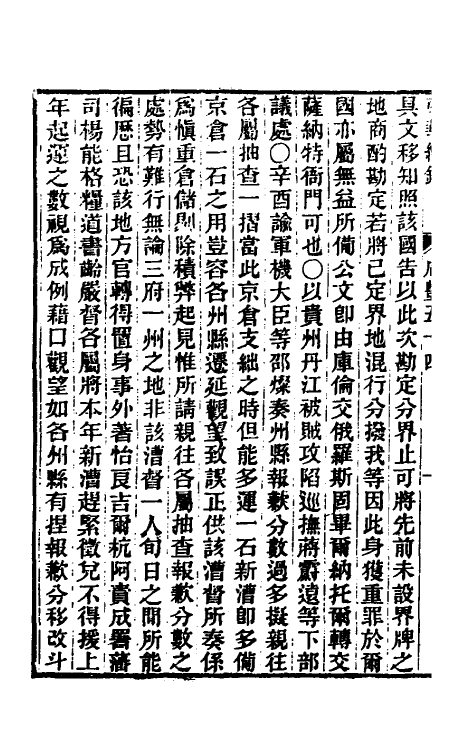 具文移知照該國告以此次勘定分界止可將先前未設界牌之
地商酌勘定若將已定界地混行分撥我等因此身獲重罪於爾
國亦屬無益所備公文卽由庫倫交俄羅斯固畢爾納托爾轉交
薩納特衙門可也〇以貴州丹江被賊攻陷巡撫蔣霨遠等下部
議處〇辛酉諭軍機大臣等邵燦奏州縣報歉分數過多擬親往
各屬抽查一摺當此京倉支絀之時但能多運一石新漕卽多備
京倉一石之用豈容各州縣遷延觀望致誤正供該漕督所奏係
爲愼重倉儲剔除積弊起見惟所請親往各屬抽查報歉分數之
處勢有難行無論三府一州之地非該漕督一人旬日之間所能
徧歷且恐該地方官轉得置身事外著怡良吉爾杭阿責成署藩
司楊能格糧道書齡嚴督各屬將本年新漕趕緊徵兌不得援上
年起運之數視爲成例藉口觀望如各州縣有捏報歉分移改斗